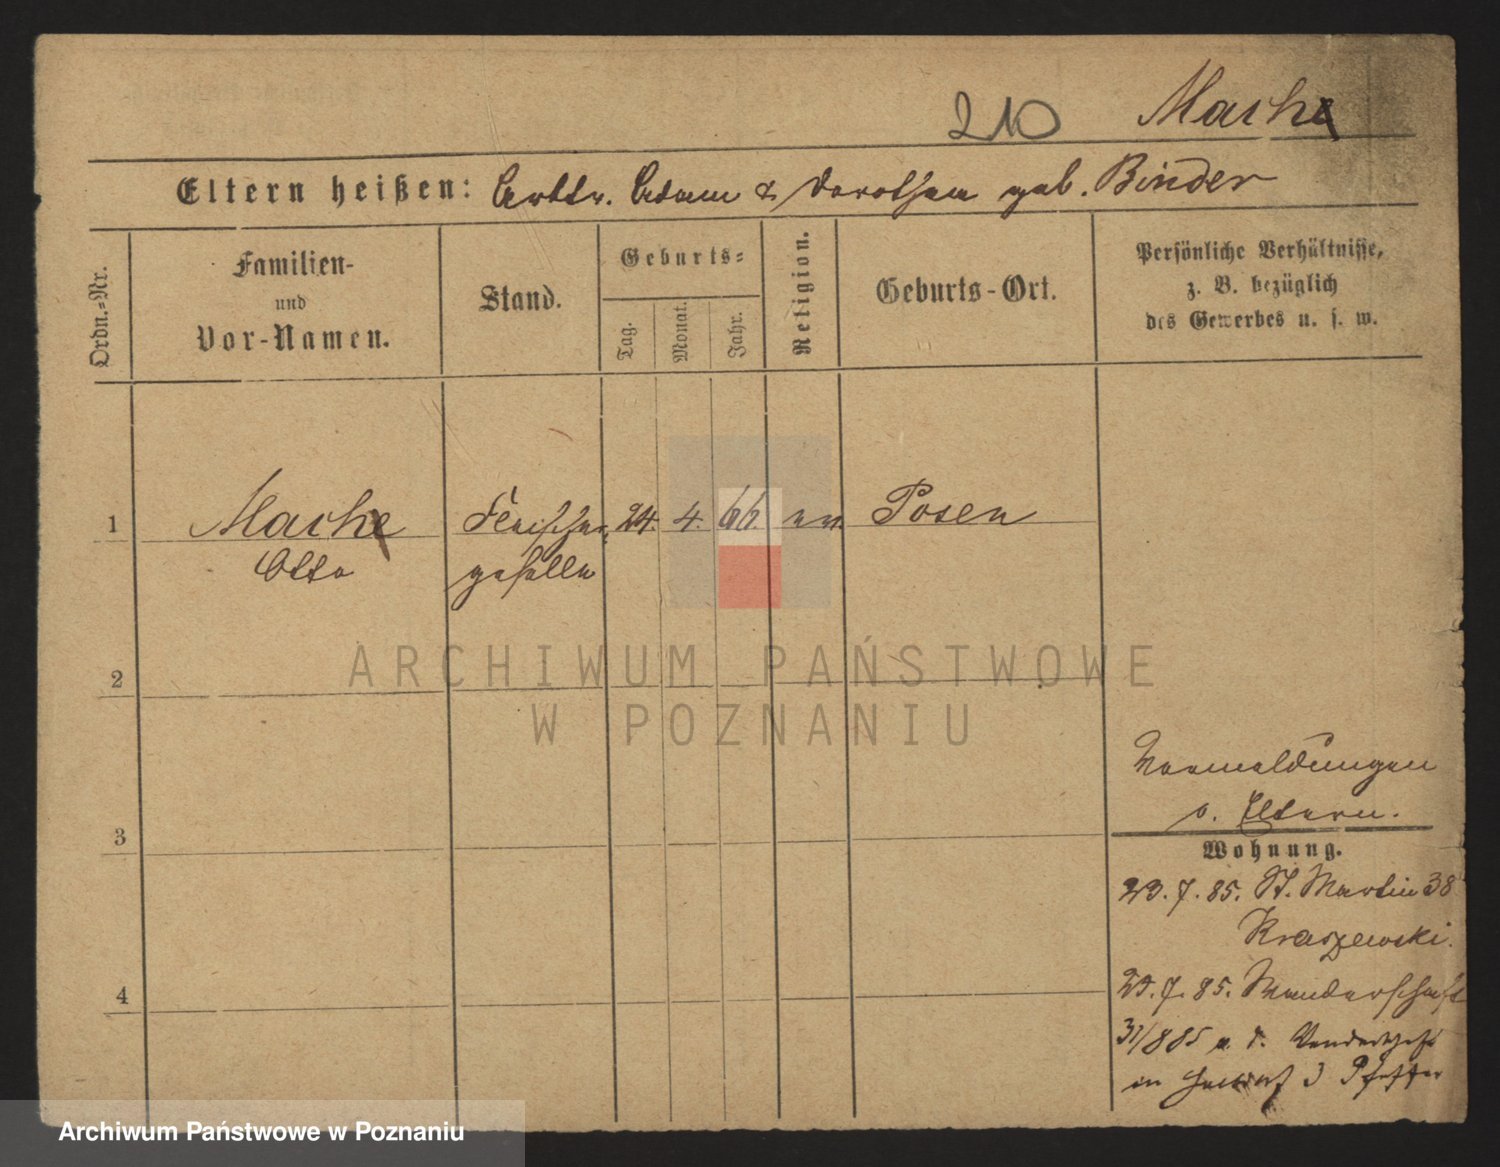 210 Mach
Eltern heißen: Arbtr. Adam & Dorothea geb. Binder
Ordn.-Nr.
Familien-
und
Vor-Namen.
Stand.
Geburts-
Tag.
Monat.
Jahr.
Religion.
Geburts-Ort.
Persönliche Verhältnisse,
z. B. bezüglich
des Gewerbes u. s. w.
1 Mache Fleischer- 24. 4. 66. ev. Posen
Otto geselle
2
3
4
Vermeldungen
s. Eltern.
Wohnung.
23. 7. 85. St. Martin 38
Kraszewski.
29. 7. 85. Wanderschaft
31/8 85 v. d. Wanderschaft
in 3
ARCHIWUM PAŃSTWOWE
W POZNANIU
Archiwum Państwowe w Poznaniu